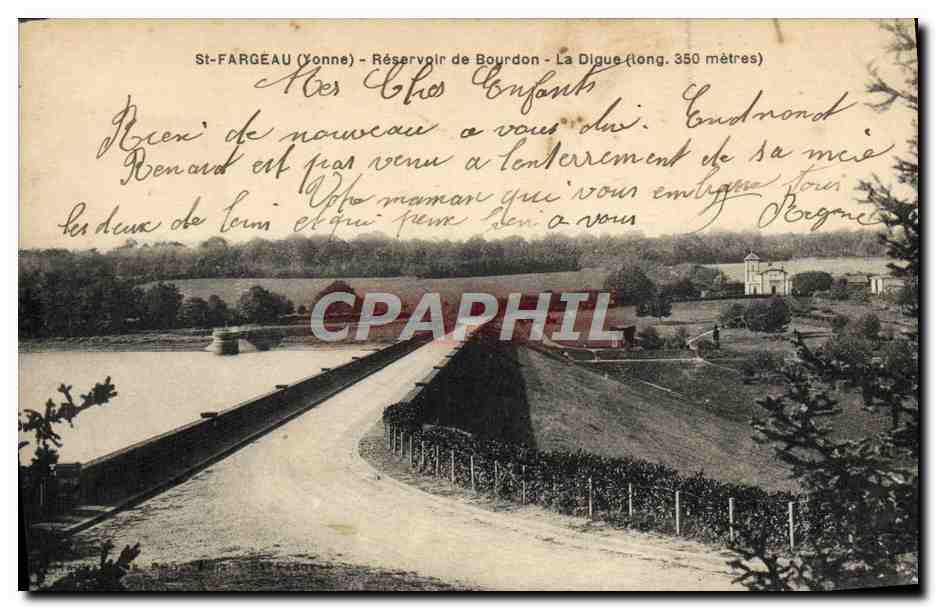 St-FARGEAU (Yonne) - Réservoir de Bourdon - La Digue (long. 350 mètres)
Mes Chers Enfants
Rien de nouveau a vous dir.
Renard est pas venu a lenterrement de sa
Votre maman qui vous embrasse tous
les deux de loin et qui peux bien a vous
CPAPHIL